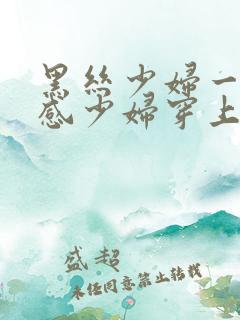 黑丝少妇一
感少妇穿上
盛超
未经同意禁止转载